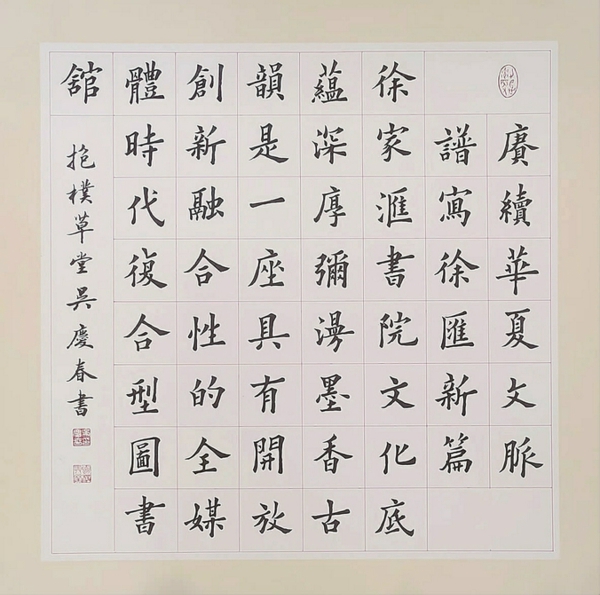 賡續華夏文脈
譜寫徐匯新篇
徐家滙書院文化底
蘊深厚彌漫墨香古
韻是一座具有開放
創新融合性的全媒
體時代復合型圖書
舘
抱樸草堂吳慶春書